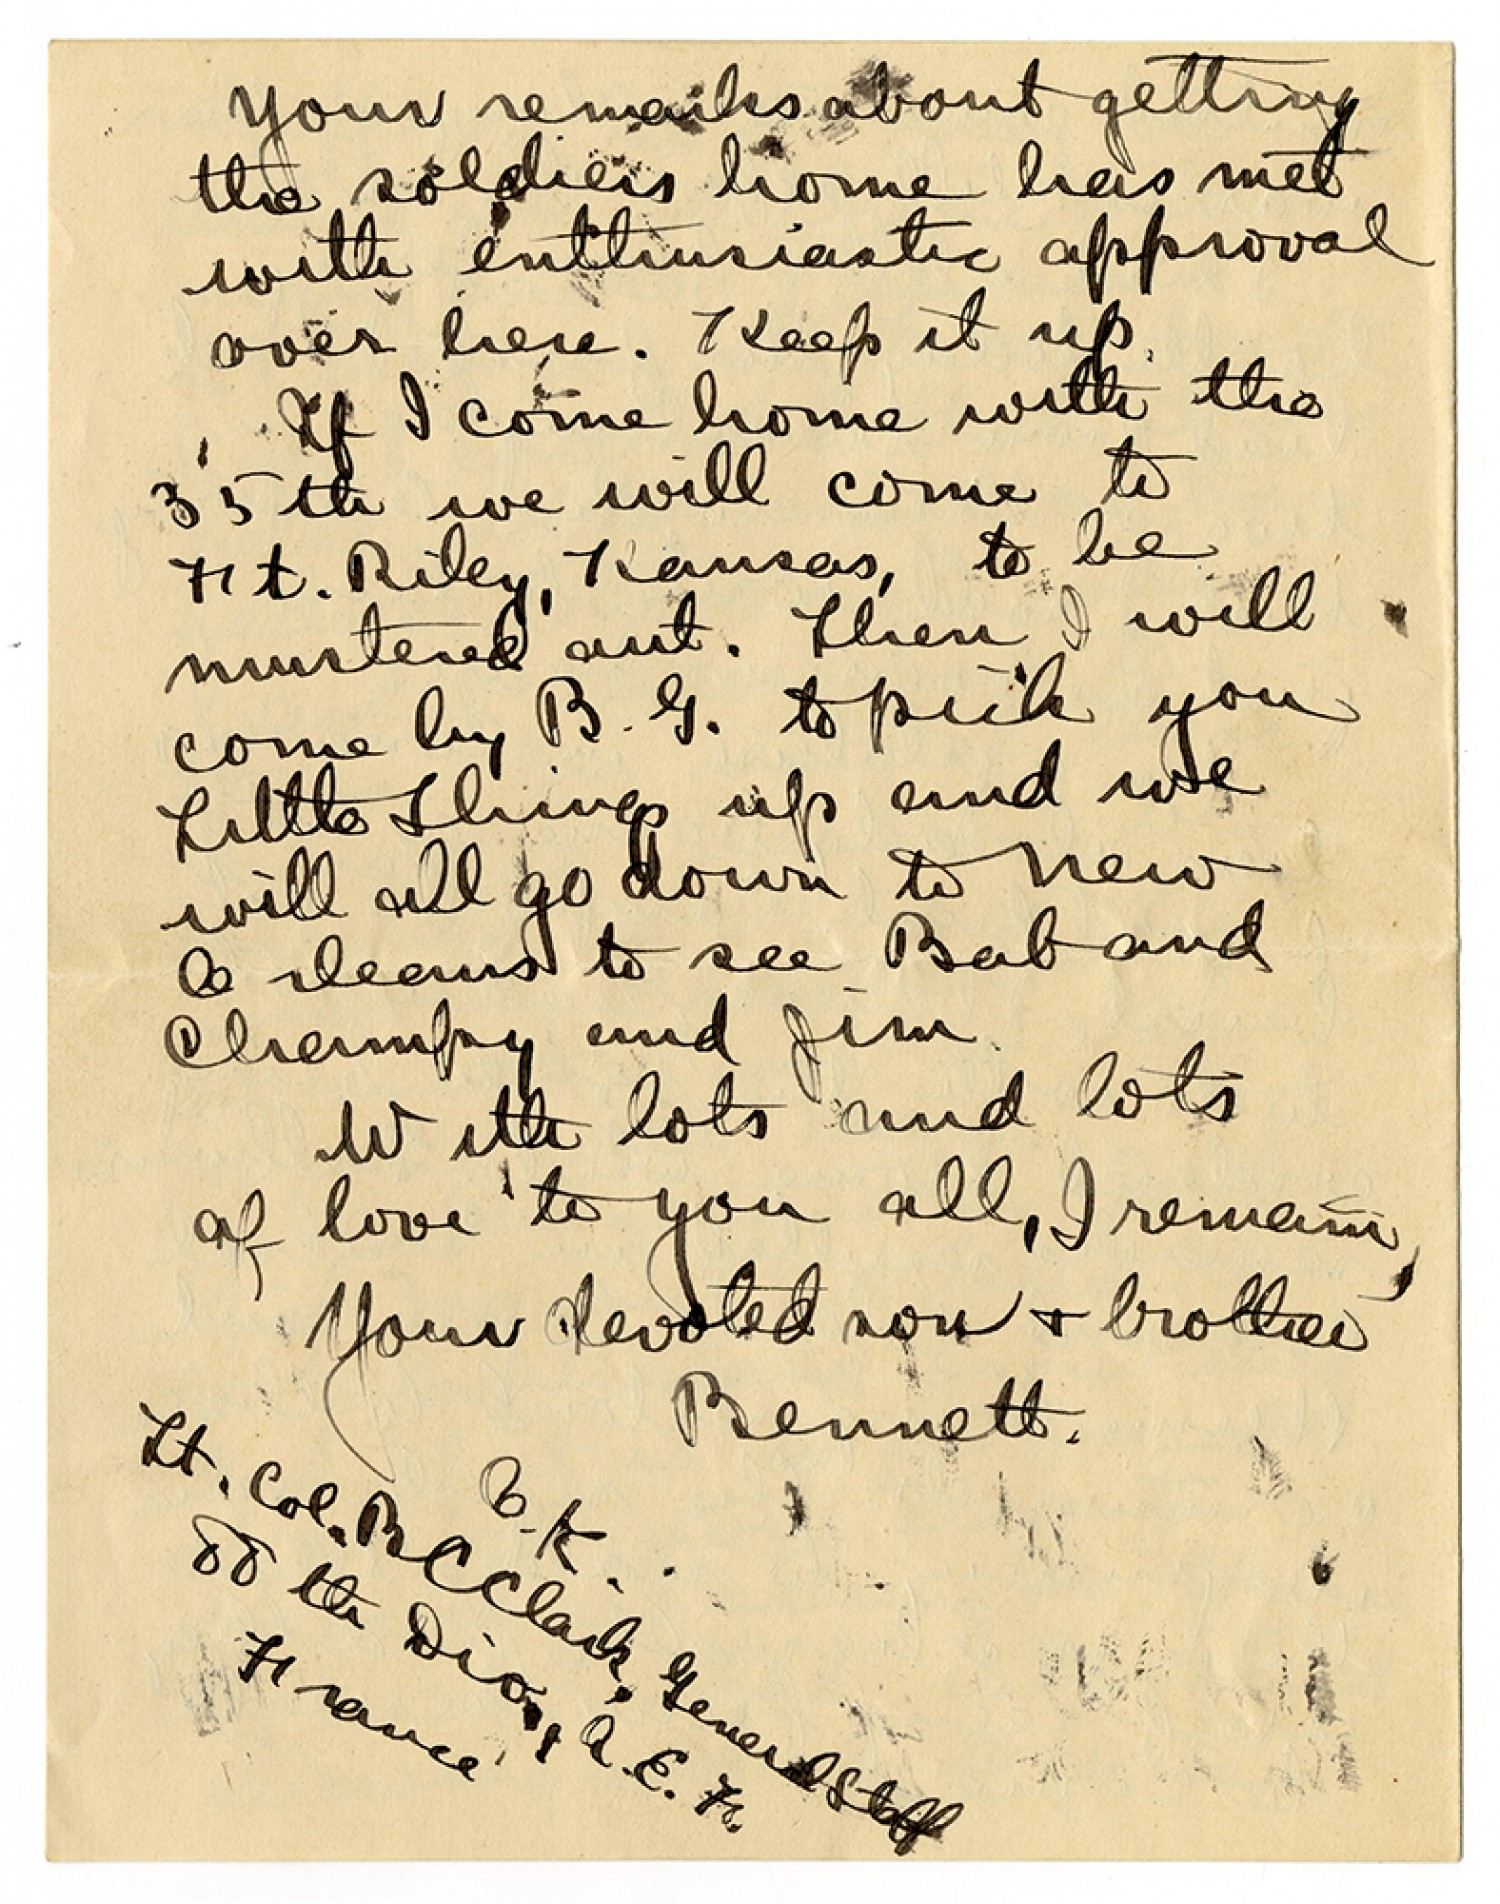 Your remarks about getting
the soldiers home has met
with enthusiastic approval
over here. Keep it up.
If I come home with the
35th we will come to
Ft. Riley, Kansas, to be
mustered out. Then I will
come by B. G. to pick you
Little Things up and we
will all go down to New
Orleans to see Bab and
Champy and Jim.
With lots and lots
of love to you all, I remain,
Your devoted son & brother
Bennett.
O.K.
Lt. Col. B C Clark, General Staff
88th Div., A. E. F.
France